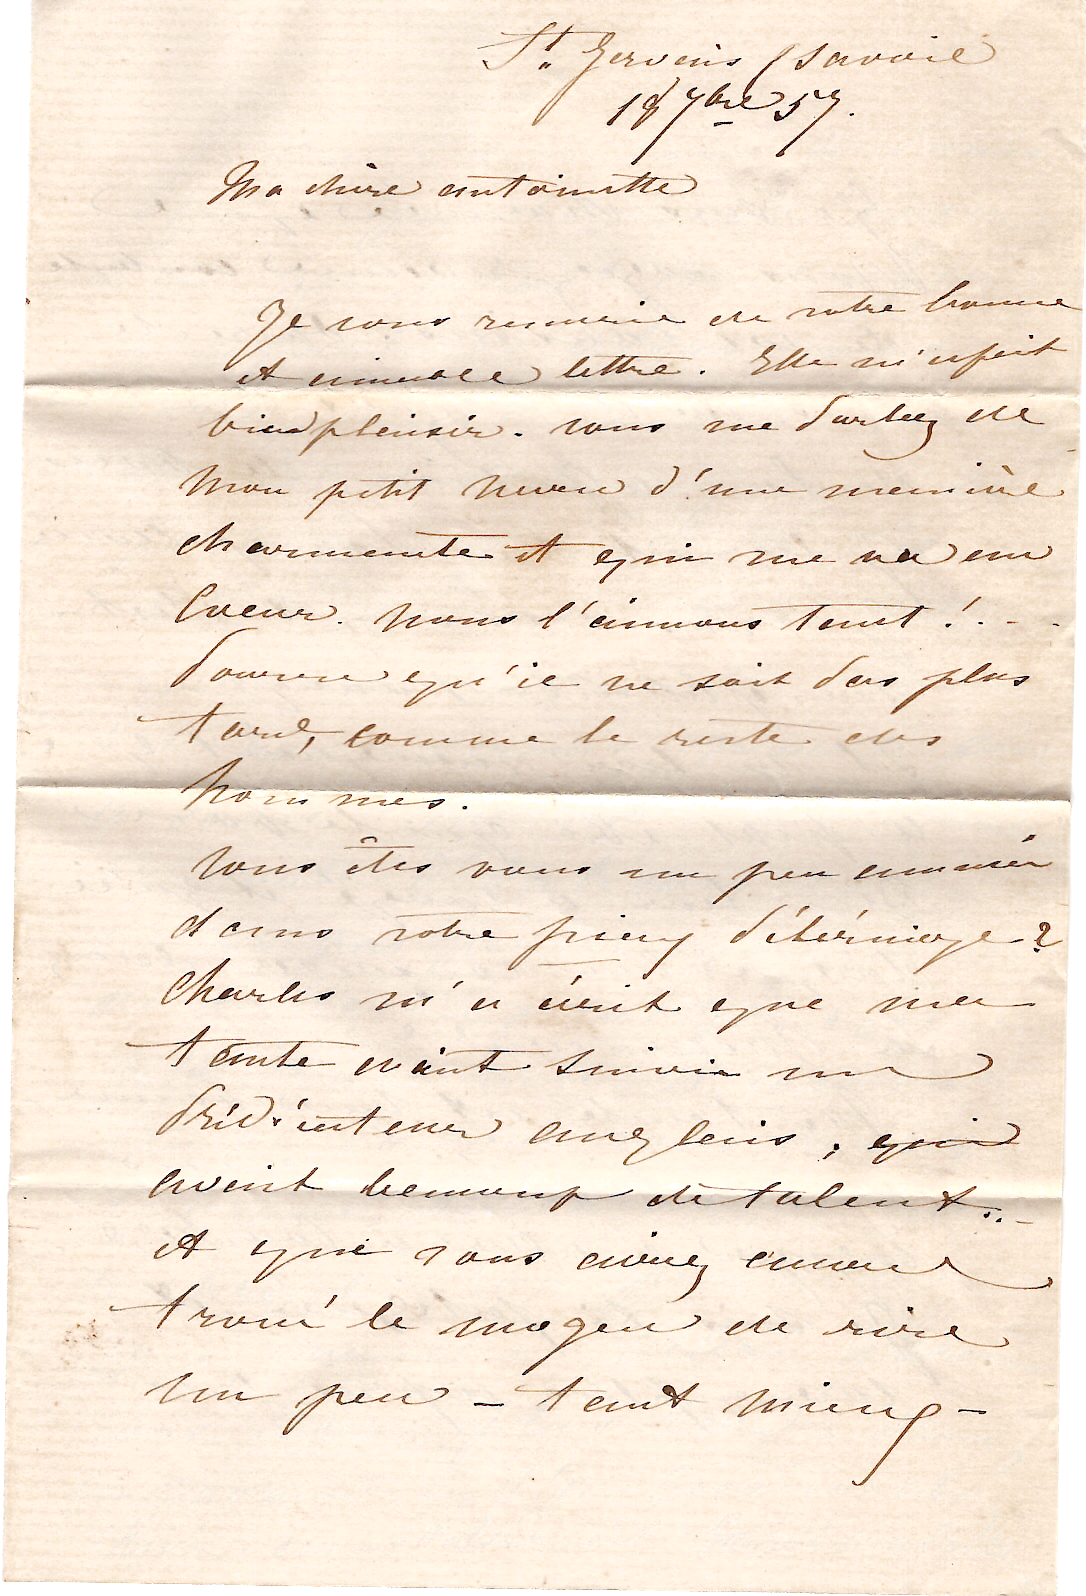 St Gervais (Savoie
18 7bre 57.
Ma chère antoinette
Je vous remercie de votre bonne
et aimable lettre. Elle m'a fait
bien plaisir. vous me parlez de
mon petit neveu d'une manière
charmante et qui me va au
Coeur. nous l'aimons tant !...
pourvu qu'il ne soit pas plus
tard, comme le reste des
hommes.
vous êtes vous un peu amusée
dans votre pieux pélérinage ?
Charles m'a écrit que ma
tante avait suivie un
prédicateur anglais, qui
avait beaucoup de talent...
et que vous aviez encore
trouvé le moyen de rire
un peu - tant mieux -